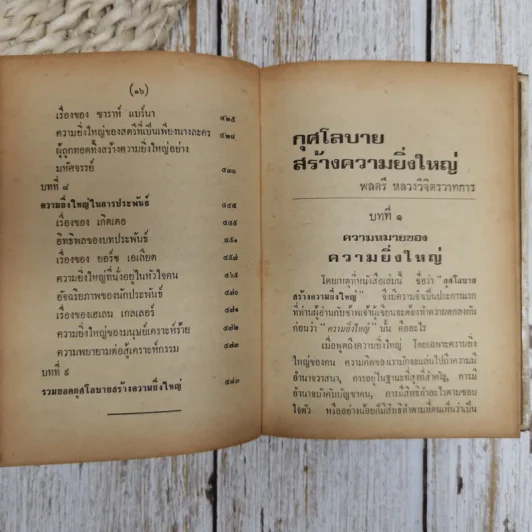 (๑๖)
เรื่องของ ซาราห์ แบร์นา ๔๒๕
ความยิ่งใหญ่ของสตรีที่เป็นเพียงนางละคร ๔๒๘
ผู้ถูกทอดทิ้งสร้างความยิ่งใหญ่อย่าง
มหัศจรรย์ ๔๓๑
บทที่ ๘
ความยิ่งใหญ่ในการประพันธ์ ๔๔๔
เรื่องของ เกิตเตอ ๔๔๕
อิทธิพลของบทประพันธ์ ๔๕๑
เรื่องของ ยอร์ช เอเลียต ๔๕๗
ความยิ่งใหญ่ที่นั่งอยู่ในหัวใจคน ๔๖๕
อัจฉริยภาพของนักประพันธ์ ๔๗๐
เรื่องของเฮเลน เกลเลอร์ ๔๗๑
ความยิ่งใหญ่ของมนุษย์เคราะห์ร้าย ๔๗๒
ความพยายามต่อสู้เคราะห์กรรม ๔๗๓
บทที่ ๙
รวมยอดกุศโลบายสร้างความยิ่งใหญ่ ๔๘๓
กุศโลบาย
สร้างความยิ่งใหญ่
พลตรี หลวงวิจิตรวาทการ
บทที่ ๑
ความหมายของ
ความยิ่งใหญ่
โดยเหตุที่หนังสือเล่มนี้ ชื่อว่า "กุศโลบาย
สร้างความยิ่งใหญ่" จึงมีความจำเป็นประการแรก
ที่ท่านผู้อ่านกับข้าพเจ้าผู้เขียนจะต้องทำความตกลงกัน
ก่อนว่า "ความยิ่งใหญ่" นั้น คืออะไร
เมื่อพูดถึงความยิ่งใหญ่ โดยเฉพาะความยิ่ง
ใหญ่ของคน ความคิดของเรามักจะแล่นไปถึงความมี
อำนาจวาสนา, การอยู่ในฐานะที่สูงที่สำคัญ, การมี
อำนาจบังคับบัญชาคน, การมีสิทธิทำอะไรตามชอบ
ใจตัว หรืออย่างน้อยก็มีสิทธิทำตามที่ตนเห็นว่าเป็น